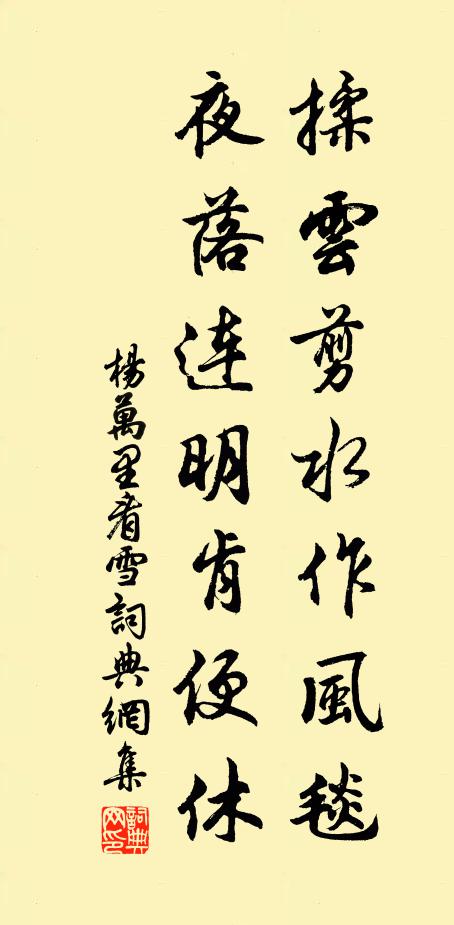 揉雲剪水作風毯
夜落連明肯便休
楊萬里看雪詞典網集
詞典網印